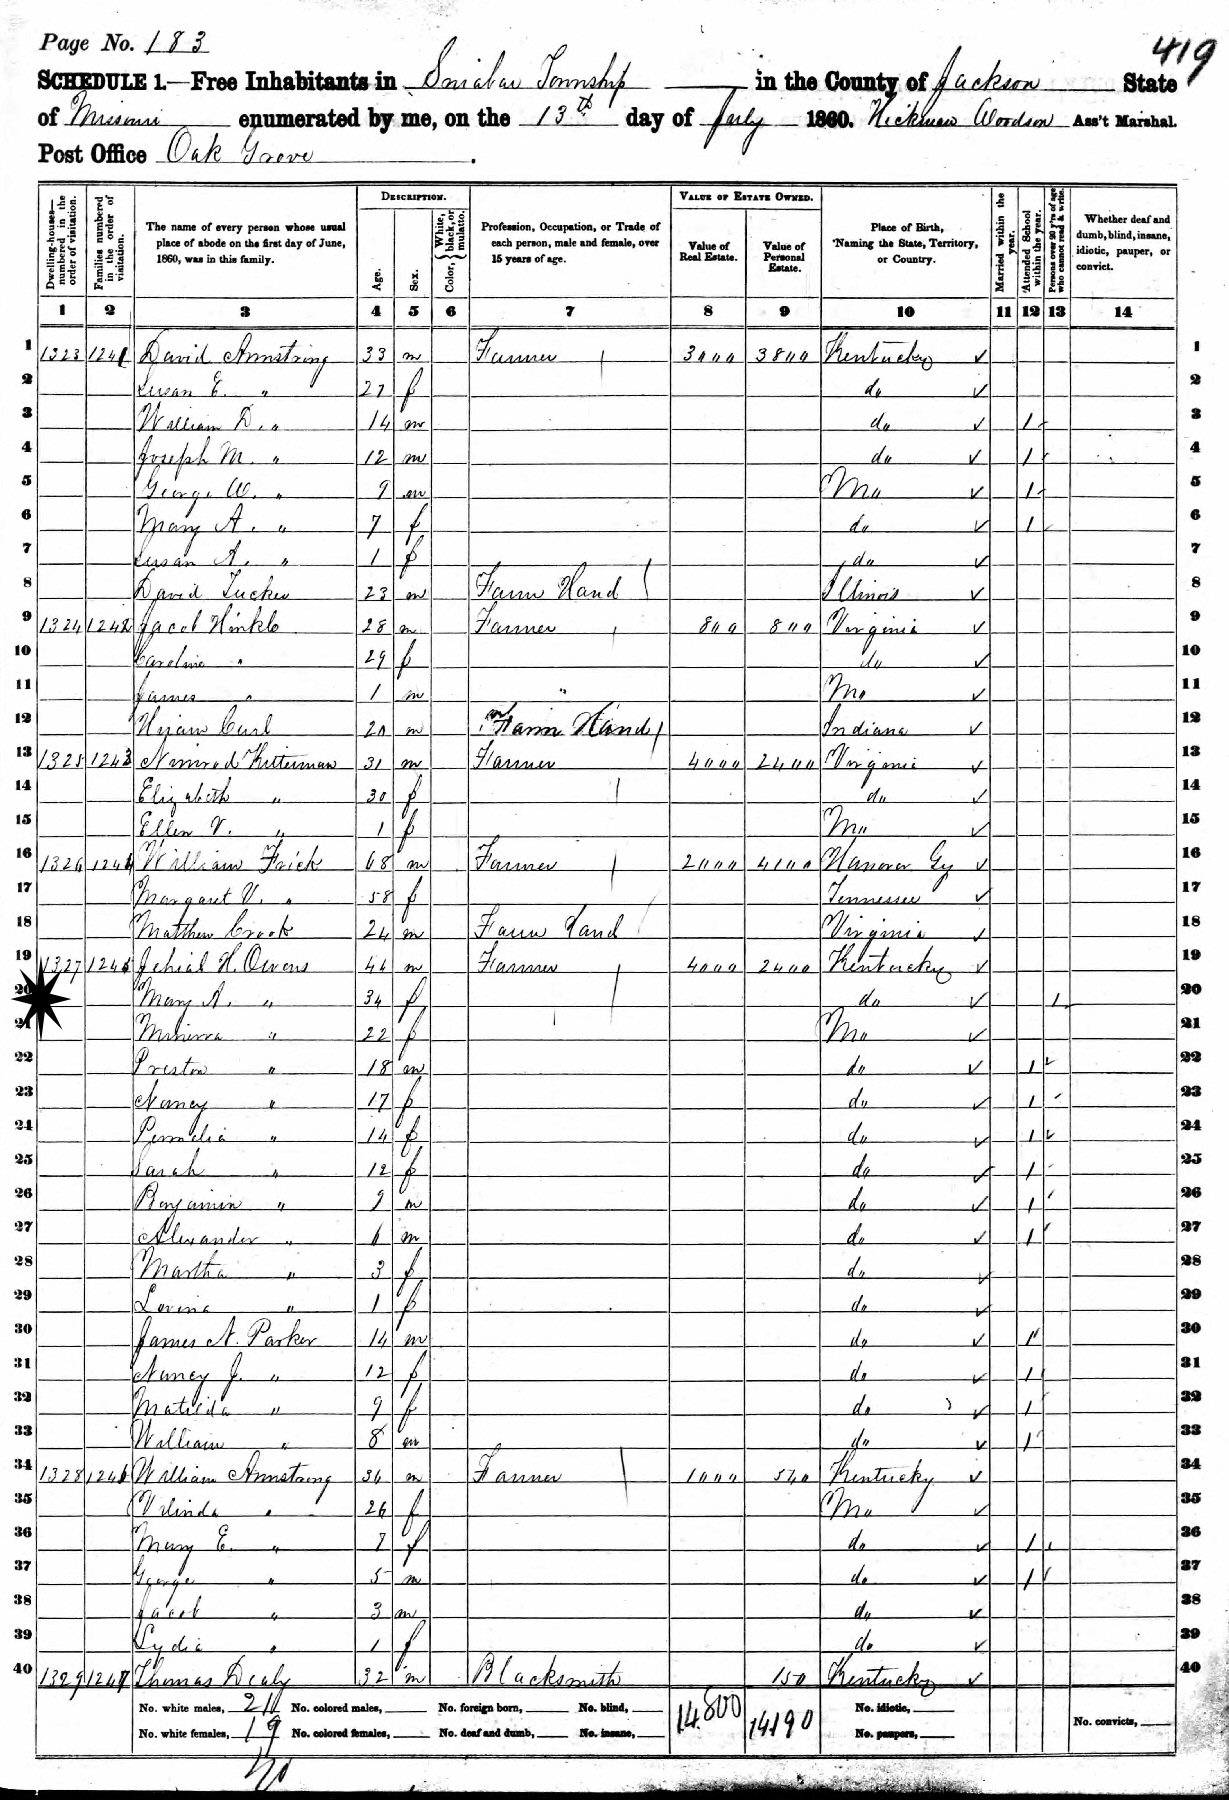 Page No. 183
419
SCHEDULE 1.—Free Inhabitants in Sniabar Township in the County of Jackson State
of Missouri enumerated by me, on the 13th day of July 1860. Hickman Woodson Ass't Marshal.
Post Office Oak Grove.
Dwelling-houses—numbered in the order of visitation. Families numbered in the order of visitation. The name of every person whose usual place of abode on the first day of June, 1860, was in this family. DESCRIPTION. Age. Sex. Color, {White, black, or mulatto.} Profession, Occupation, or Trade of each person, male and female, over 15 years of age. VALUE OF ESTATE OWNED. Value of Real Estate. Value of Personal Estate. Place of Birth, Naming the State, Territory, or Country. Married within the year. Attended School within the year. Persons over 20 y'rs of age who cannot read & write. Whether deaf and dumb, blind, insane, idiotic, pauper, or convict.
1 2 3 4 5 6 7 8 9 10 11 12 13 14
1 1323 1241 David Armstrong 33 m Farmer 3000 3800 Kentucky ✓ 1
2 Susan E. " 27 f do ✓ 2
3 William D. " 14 m do ✓ 1 3
4 Joseph M. " 12 m do ✓ 1 4
5 George W. " 9 m Mo ✓ 1 5
6 Mary A. " 7 f do ✓ 1 6
7 Susan A. " 1 f do ✓ 7
8 David Tucker 23 m Farm Hand Illinois ✓ 8
9 1324 1242 Jacob Hinkle 28 m Farmer 800 800 Virginia ✓ 9
10 Caroline " 29 f do ✓ 10
11 James " 1 m " Mo ✓ 11
12 Hiram Curl 20 m Farm Hand Indiana ✓ 12
13 1325 1243 Nimrod Kiterman 31 m Farmer 4000 2400 Virginia ✓ 13
14 Elizabeth " 30 f do ✓ 14
15 Ellen V. " 1 f Mo ✓ 15
16 1326 1244 William Frick 68 m Farmer 2000 4100 Hanover Gy ✓ 16
17 Margaret V. " 58 f Tennessee ✓ 17
18 Matthew Crook 24 m Farm Hand Virginia ✓ 18
19 1327 1245 Jehial H. Owens 44 m Farmer 4000 2400 Kentucky ✓ 19
20 Mary A. " 34 f do ✓ 1 20
21 Minerva " 22 f Mo ✓ 21
22 Preston " 18 m do ✓ 1 22
23 Nancy " 17 f do ✓ 1 23
24 Permelia " 14 f do ✓ 1 24
25 Sarah " 12 f do ✓ 1 25
26 Benjamin " 9 m do ✓ 1 26
27 Alexander " 6 m do ✓ 1 27
28 Martha " 3 f do ✓ 28
29 Lovina " 1 f do ✓ 29
30 James N. Parker 14 m do ✓ 1 30
31 Nancy J. " 12 f do ✓ 1 31
32 Matilda " 9 f do ✓ 1 32
33 William " 8 m do ✓ 1 33
34 1328 1246 William Armstrong 36 m Farmer 1000 540 Kentucky ✓ 34
35 Velinda " 26 f Mo ✓ 35
36 Mary E. " 7 f do ✓ 1 36
37 George " 5 m do ✓ 1 37
38 Jacob " 3 m do ✓ 38
39 Lydia " 1 f do ✓ 39
40 1329 1247 Thomas Dealy 32 m Blacksmith 150 Kentucky ✓ 40
No. white males, 21 No. colored males, No. foreign born, No. blind, 14.800 14190 No. idiotic,
No. white females, 19 No. colored females, No. deaf and dumb, No. insane, No. paupers, No. convicts,
40